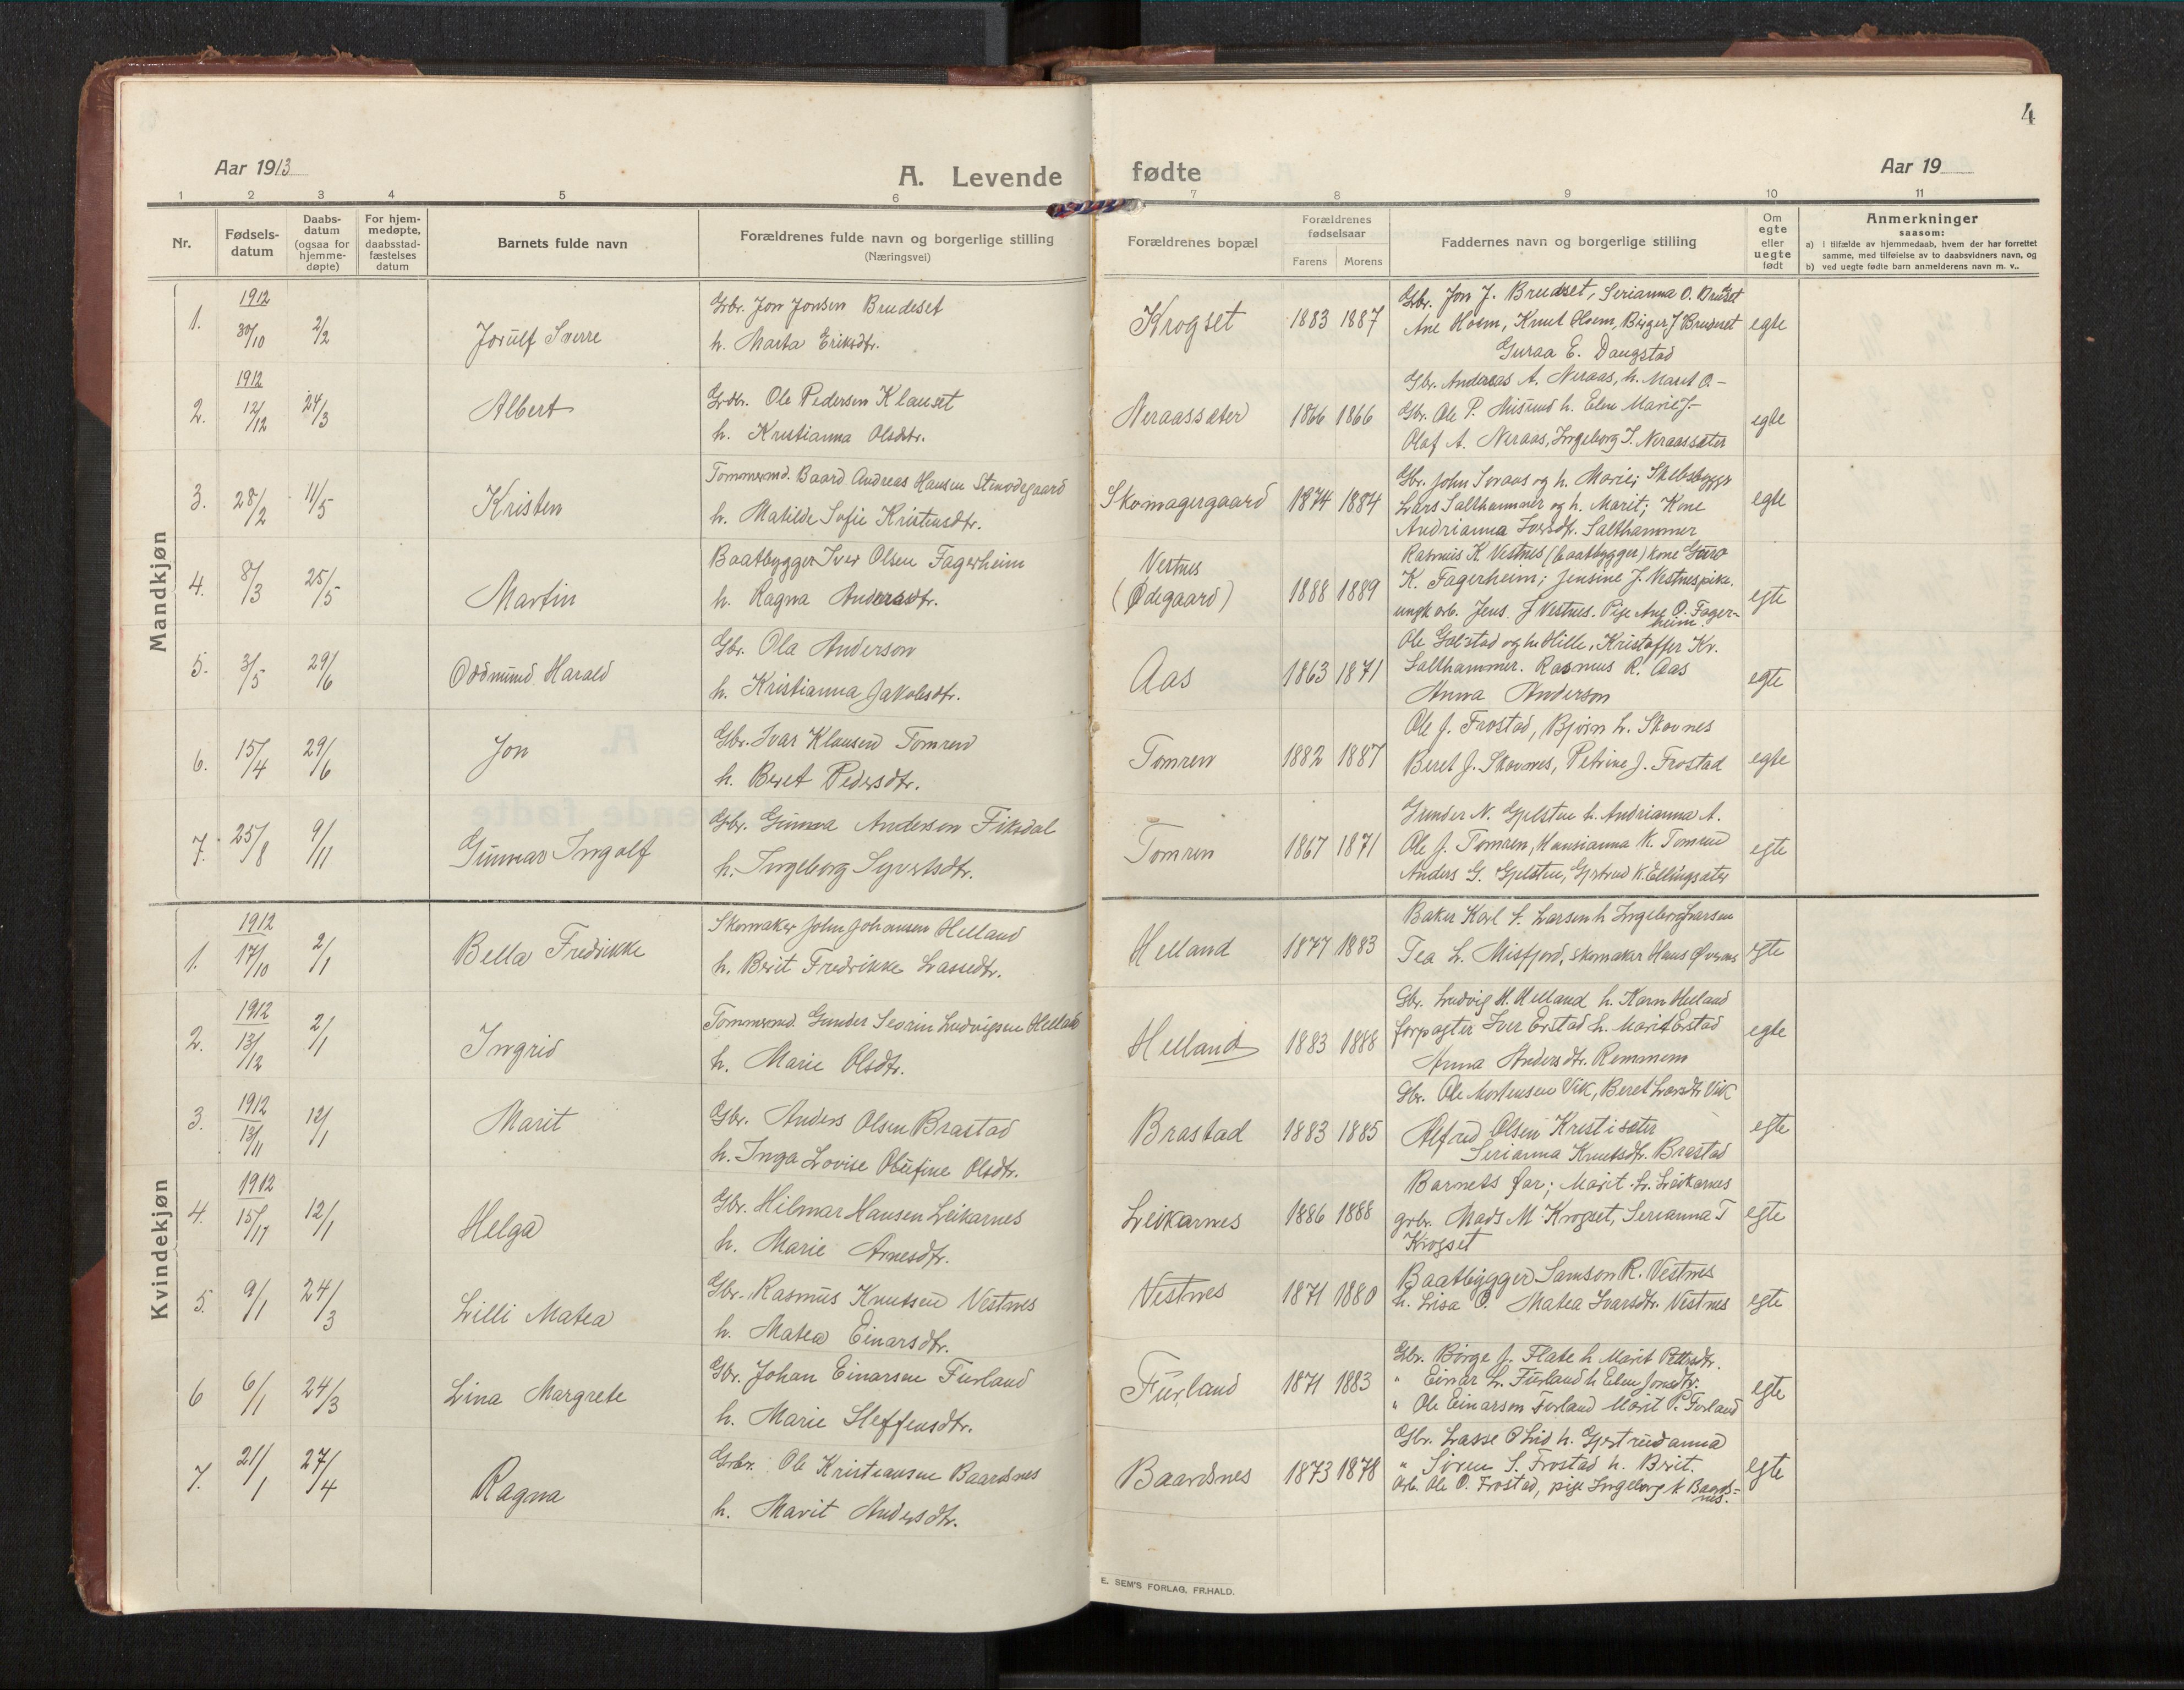 4
Aar 1913
A. Levende fødte
Aar 19
1 2 3 4 5 6 7 8 9 10 11
Nr.
Fødsels-
datum
Daabs-
datum
(ogsaa for
hjemme-
døpte)
For hjem-
medøpte,
daabsstad-
fæstelses
datum
Barnets fulde navn
Forældrenes fulde navn og borgerlige stilling
(Næringsvei)
Forældrenes bopæl
Forældrenes
fødselsaar
Farens Morens
Faddernes navn og borgerlige stilling
Om
egte
eller
uegte
født
Anmerkninger
saasom:
a) i tilfælde av hjemmedaab, hvem der har forrettet
samme, med tilføielse av to daabsvidners navn, og
b) ved uegte fødte barn anmelderens navn m. v..
Mandkjøn
1. 1912 30/10 2/2 Jorulf Sverre
Gbr. Jon Jonsen Brudeset
h. Marta Eriksdtr.
Krogset 1883 1887
Gbr. Jon J. Brudeset, Serianna O. Brudeset
Ane Hoem, Knut Hoem, Birger J Brudeset
Guraa E. Daugstad
egte
2. 1912 12/12 24/3 Albert
Gbr. Ole Pedersen Klauset
h. Kristianna Olsdtr.
Neraassæter 1866 1866
Gbr. Andereas A. Neraas, h. Marit O.-
Gbr. Ole P. Misund h. Elen Marie J.-
Olaf A. Neraas, Ingeborg I. Neraassæter
egte
3. 28/2 11/5 Kristen
Tømmermd. Baard Andreas Hansen Stenødegaard
h. Matilde Sofie Kristensdtr.
Skomagergaard 1874 1884
Gbr. John Svaas og h. Marie; Skibsbygger
Lars Salthammer og h. Marit; Kone
Andrianna Iversdtr. Salthammer
egte
4. 8/3 25/5 Martin
Baatbygger Iver Olsen Fagerheim
h. Ragna Andersdtr.
Vestnes
(Ødegaard) 1888 1889
Rasmus K. Vestnes (baatbygger) kone Guro
K. Fagerheim; Jensine J. Vestnes pike.
ungk arb. Jens J Vestnes. Pige Ane O. Fager-
heim.
egte
5. 3/5 29/6 Oddmund Harald
Gbr. Ola Anderson
h. Kristianna Jakobsdtr.
Aas 1863 1871
Ole Gjelstad og h. Hille, Kristoffer Kr.
Salthammer. Rasmus R. Aas
Anna Anderson
egte
6. 15/4 29/6 Jon
Gbr. Ivar Klausen Tomren
h. Beret Pedersdtr.
Tomren 1882 1887
Ole J. Frostad, Bjørn L. Skovnes
Beret J. Skovnes, Petrine J. Frostad
egte
7. 25/8 9/11 Gunnar Ingolf
Gbr. Gunnar Anderson Fiksdal
h. Ingeborg Syvertsdtr.
Tomren 1867 1871
Gunder N. Gjelsten h. Andrianna A.
Ole J. Tomren, Hansianna K. Tomren
Anders G. Gjelsten, Gjertrud K. Ellingsæter
egte
Kvindekjøn
1. 1912 17/10 2/1 Bella Fredrikke
Skomaker John Johansen Helland
h. Berit Fredrikke Lassedtr.
Helland 1877 1883
Baker Karl L. Larsen h Ingeborg Larsen
Tea L. Misfjord, skomaker Hans Øvernes
egte
2. 1912 13/12 2/1 Ingrid
Tømmermd. Gunder Severin Ludvigsen Helland
h. Marie Olsdtr.
Helland 1883 1888
Gbr. Ludvig H. Helland h. Karn Helland
forpagter Iver Erstad h. Marit Erstad
Anna Andersdtr. Remmem
egte
3. 1912 13/11 12/1 Marit
Gbr. Anders Olsen Brastad
h. Inga Lovise Olufine Olsdtr.
Brastad 1883 1885
Gbr. Ole Mortensen Vik, Beret Larsdtr Vik
Alfred Olsen Krestisæter
Serianna Knutsdtr. Brastad
egte
4. 1912 15/11 12/1 Helga
Gbr. Hilmar Hansen Leikarnes
h. Marie Arnesdtr.
Leikarnes 1886 1888
Barnets far; Marit L. Leikarnes
grbr. Mads M. Krogset, Serianna T
Krogset
egte
5. 9/1 24/3 Lilli Matea
Gbr. Rasmus Knutsen Vestnes
h. Matea Einarsdtr.
Vestnes 1871 1880
Baatbygger Samson R. Vestnes
h. Lisa O. Matea Ivarsdtr. Vestnes
egte
6 6/1 24/3 Lina Margrete
Gbr. Johan Einarsen Furland
h. Marie Steffensdtr.
Furland 1871 1883
Gbr. Børge J. Flate h Marit Pettersdtr.
" Einar L. Furland h Elen Jonsdtr.
" Ole Einarsen Furland Marit P. Furland
egte
7. 21/1 27/4 Ragna
Grbr. Ole Kristiansen Baardsnes
h. Marit Andersdtr.
Baardsnes 1873 1878
Gbr. Lasse O Lid h. Gjertrudanna
" Søren S. Frostad h. Brit.
Arb. Ole O. Frostad, pige Ingeborg K Baards-
nes.
egte
E. SEM'S FORLAG, FR.HALD.